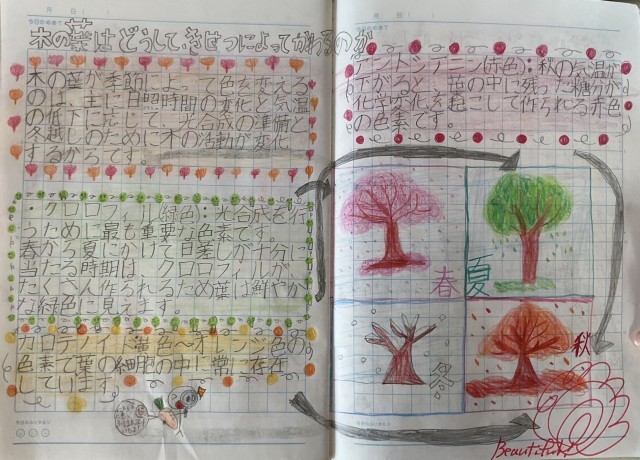 木の葉はどうして、きせつによってかわるのか
木の葉が季節によって色を変える
のは、主に日照時間の変化と気温
の低下に応じて、光合成の準備と
冬越しのために木の活動が変化
するからです。
・クロロフィル(緑色):光合成を行
うために最も重要な色素です。
春から夏にかけて日差しが十分に
当たる時期は、クロロフィルが
たくさん作られるため葉は鮮やか
な緑色に見えます。
カロテノイド:黄色〜オレンジ色の
色素で葉の細胞の中に常に存在
しています。
アントシアニン(赤色):秋の気温が
下がると、葉の中に残った糖分が
化学変化を起こして作られる赤色
の色素です。
春
夏
冬
秋
Beautiful!